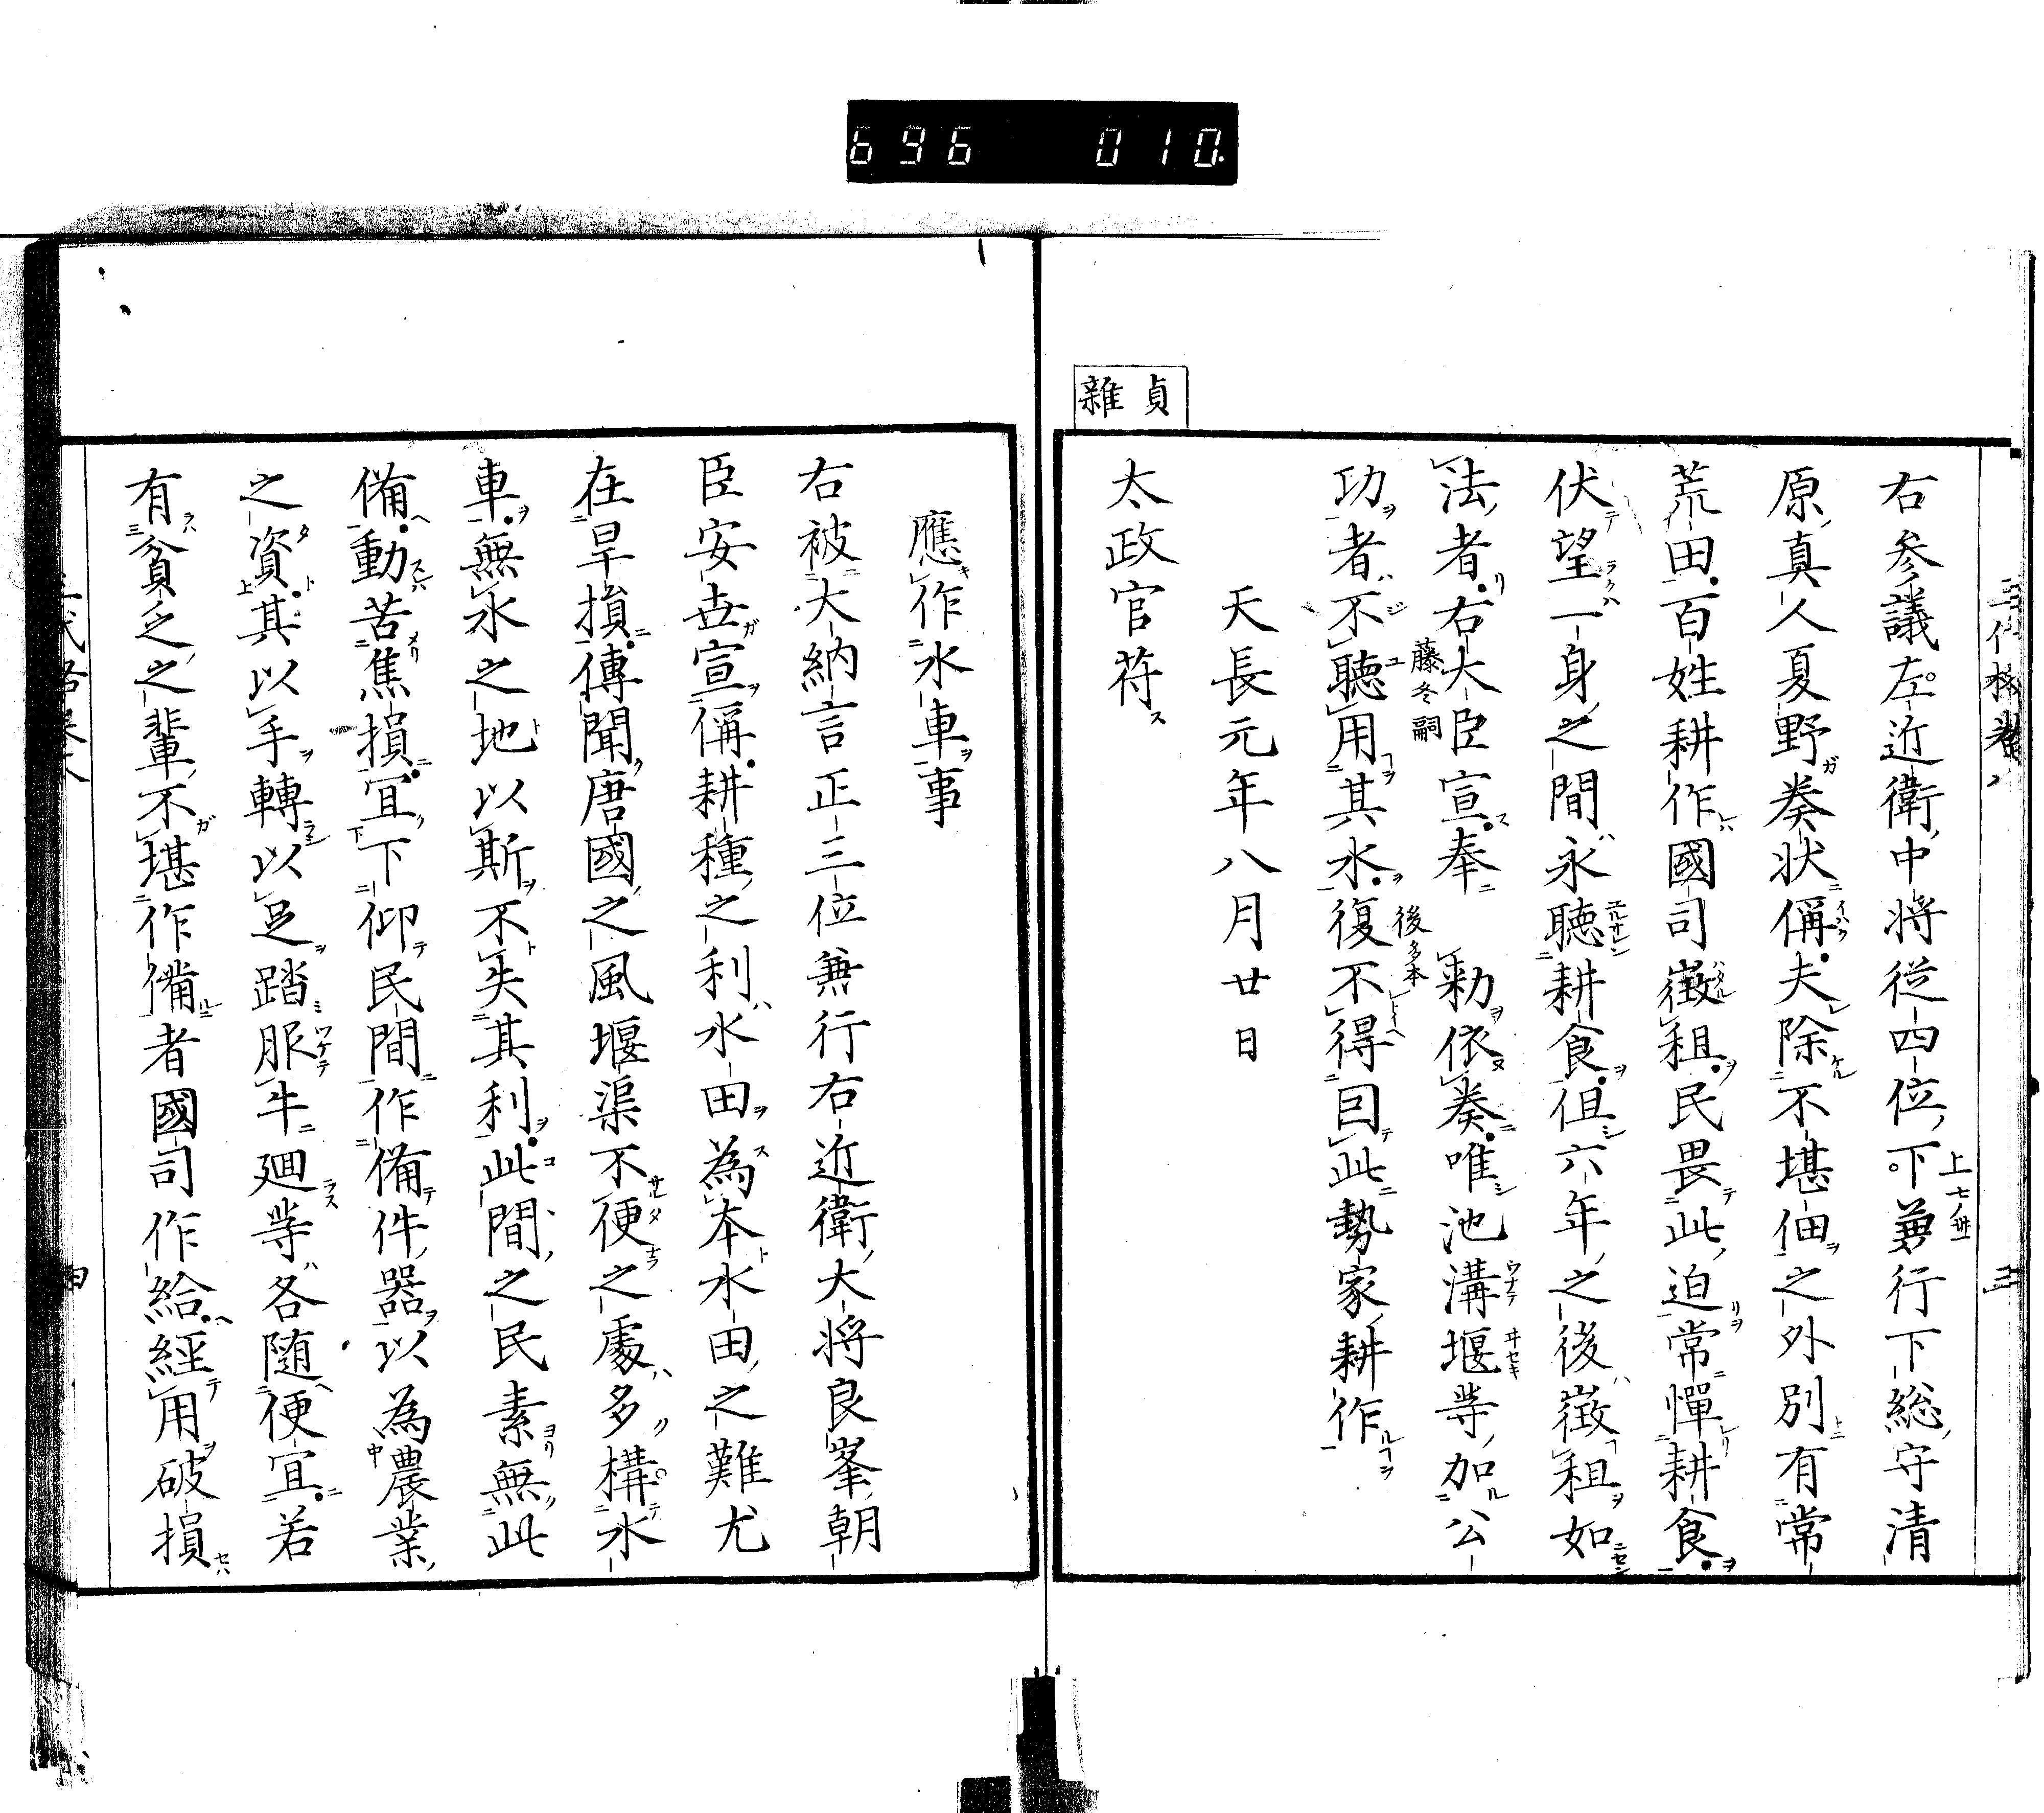 696 010.
右参議左近衛中将従四位下兼行下総守清
原真人夏野奏状稱夫除不堪佃之外別有常
荒田百姓耕作國司徴租民畏此迫常憚耕食
伏望一身之間永聴耕食但六年之後徴租如
法者右大臣宣奉　勅依奏唯池溝堰等加公
藤冬嗣
功者不聴用其水復不得因此勢家耕作
後多本
天長元年八月廿日
貞
雜
太政官符
應作水車事
右被大納言正三位兼行右近衛大将良峯朝
臣安世宣稱耕種之利水田為本水田之難尤
在旱損傳聞唐國之風堰渠不便之處多構水
車無水之地以斯不失其利此間之民素無此
備動苦焦損宜下仰民間作備件器以為農業
之資其以手轉以足踏服牛廻等各随便宜若
有貧乏之輩不堪作備者國司作給經用破損